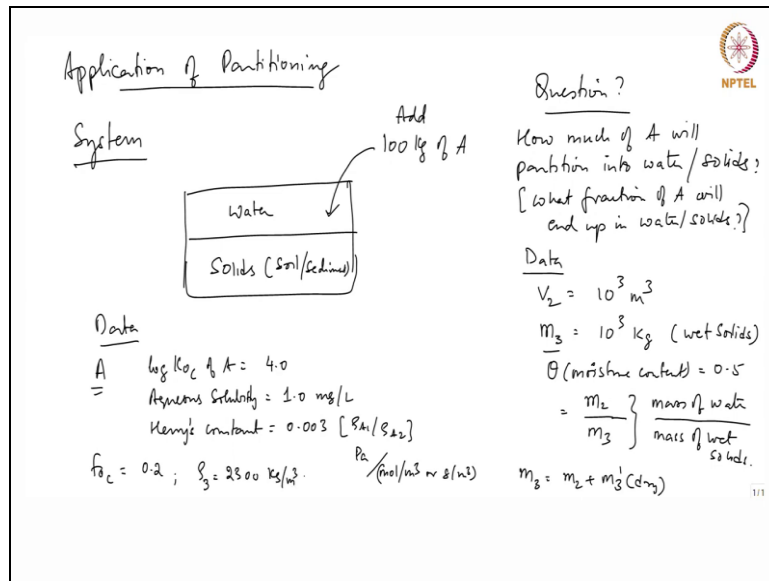 Application of Partitioning
NPTEL
System
Add
100 kg of A
Water
Solids (Soil/Sediment)
Data
A log Koc of A = 4.0
Aqueous Solubility = 1.0 mg/L
Henry's constant = 0.003 [ρA1/ρA2]
Pa/(mol/m³ or g/m³)
foc = 0.2 ; ρ3 = 2300 kg/m³.
Question?
How much of A will
partition into water/solids?
[What fraction of A will
end up in water/solids?]
Data
V2 = 10³ m³
m3 = 10³ kg (wet solids)
θ (moisture content) = 0.5
= m2/m3 } mass of water/mass of wet solids.
m3 = m2 + m3' (dry)
1/1